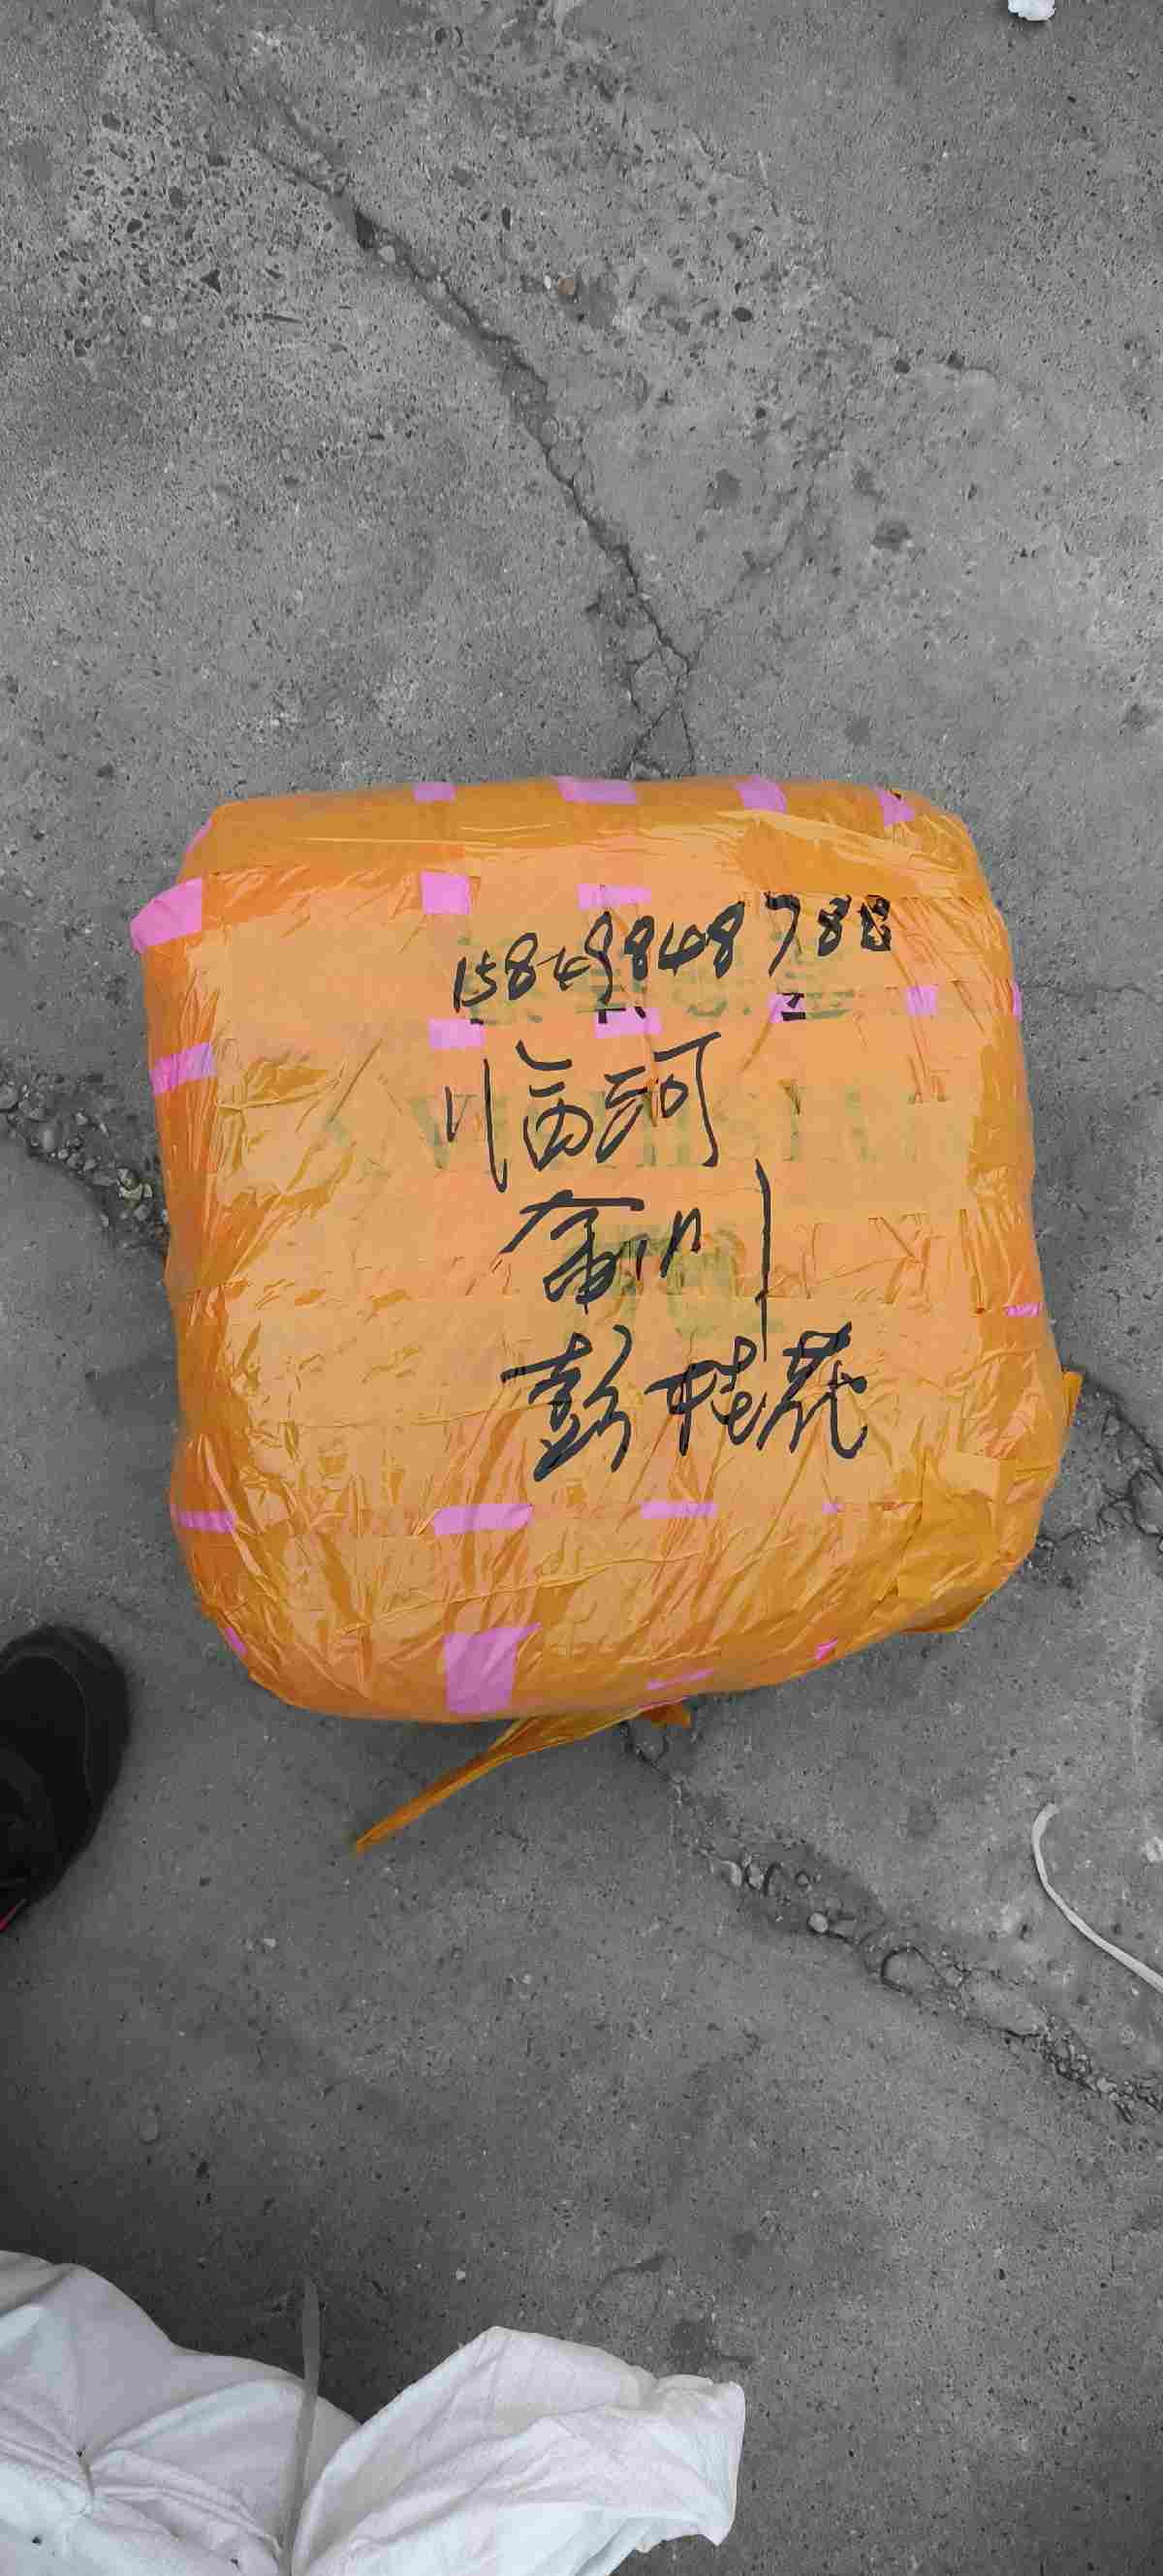 15849848788
临河
金川
彭桂花